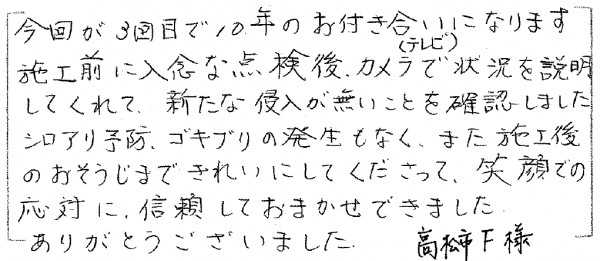 今回が3回目で10年のお付き合いになります
(テレビ)
施工前に入念な点検後、カメラで状況を説明
してくれて、新たな侵入が無いことを確認しました
シロアリ予防、ゴキブリの発生もなく、また施工後
のおそうじまできれいにしてくださって、笑顔での
応対に、信頼しておまかせできました。
ありがとうございました。 高松市F様